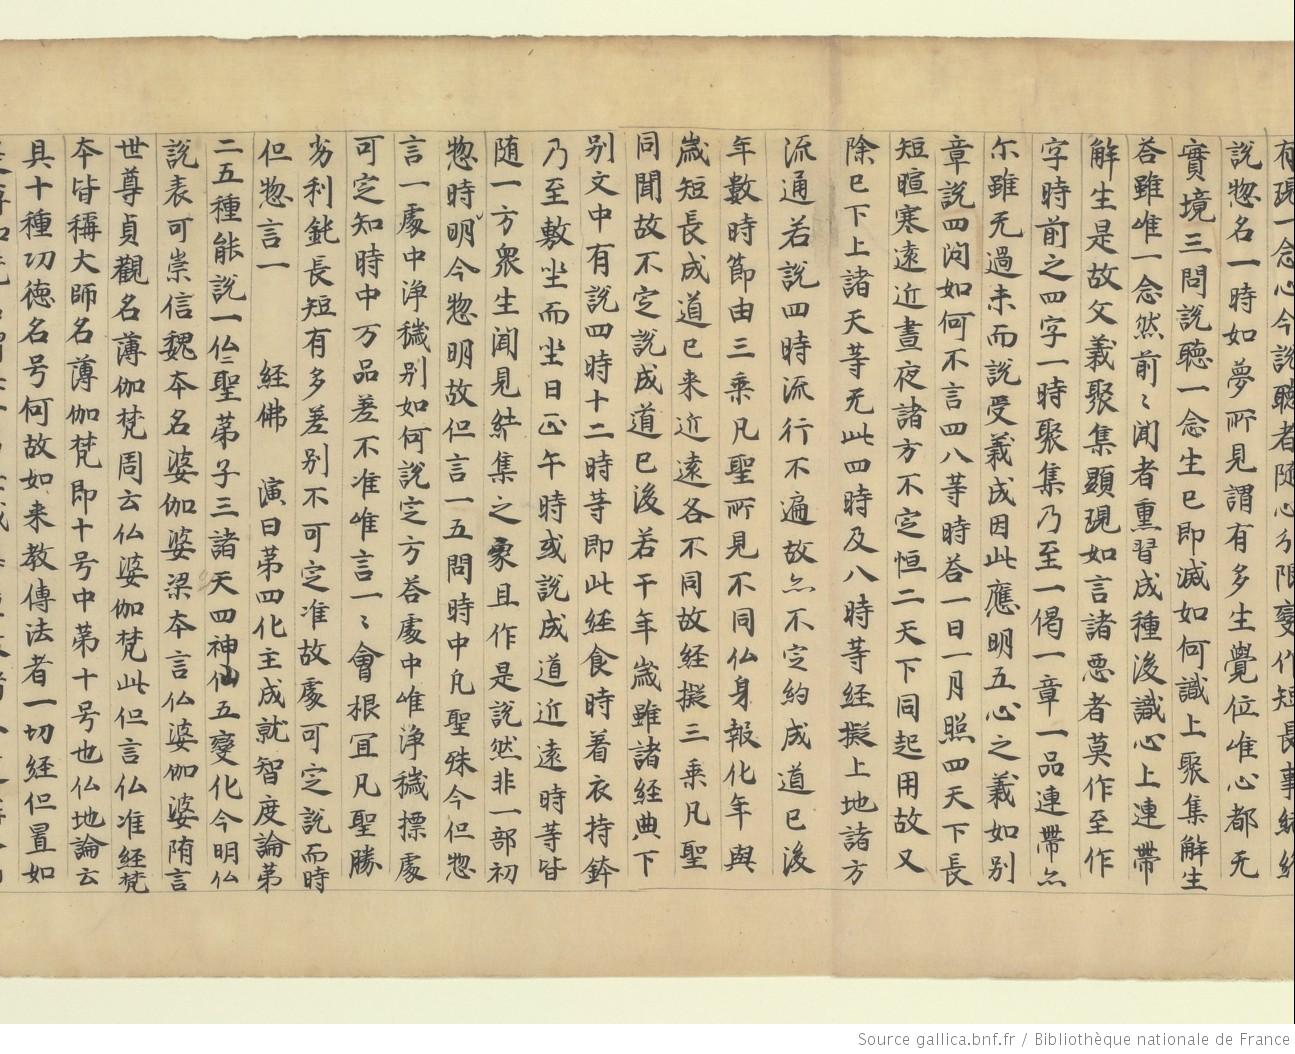 有現一念心今說聽者随心分限變作短長事緒終
說惣名一時如夢所見謂有多生覺位唯心都无
實境三問說聽一念生已即滅如何識上聚集解生
荅雖唯一念然前〻聞者熏習成種後識心上連帶
解生是故父義聚集顯現如言諸惡者莫作至作
字時前之四字一時聚集乃至一偈一章一品連帶亦
尓雖无過未而說受義成因此應明五心之義如别
章說四问如何不言四八等時荅一日一月照四天下長
短暄寒遠近晝夜諸方不定恒二天下同起用故又
除已下上諸天等无此四時及八時等経擬上地諸方
流通若說四時流行不遍故亦不定約成道已後
年數時節由三乘凡聖所見不同仏身報化年與
歳短長成道已来近遠各不同故経擬三乘凡聖
同聞故不定說成道已後若干年歳雖諸経典下
别文中有說四時十二時等即此経食時着衣持鉢
乃至敷㘴而㘴日正午時或說成道近遠時等皆
随一方衆生聞見結集之家且作是說然非一部初
惣時明今惣明故但言一五問時中凡聖殊今但惣
言一處中浄穢别如何說定方荅處中唯浄穢摽處
可定知時中万品差不准唯言一〻會根冝凡聖勝
劣利鈍長短有多差别不可定准故處可定說而時
但惣言一 経佛 演曰苐四化主成就智度論苐
二五種能說一仏二聖苐子三諸天四神仙五變化今明仏
說表可崇信魏夲名婆伽婆梁夲言仏婆伽婆隋言
世尊貞觀名薄伽梵周云仏婆伽梵此但言仏准経梵
夲皆稱大師名薄伽梵即十号中苐十号也仏地論云
具十種㓛徳名号何故如来教傳法者一切経但置如